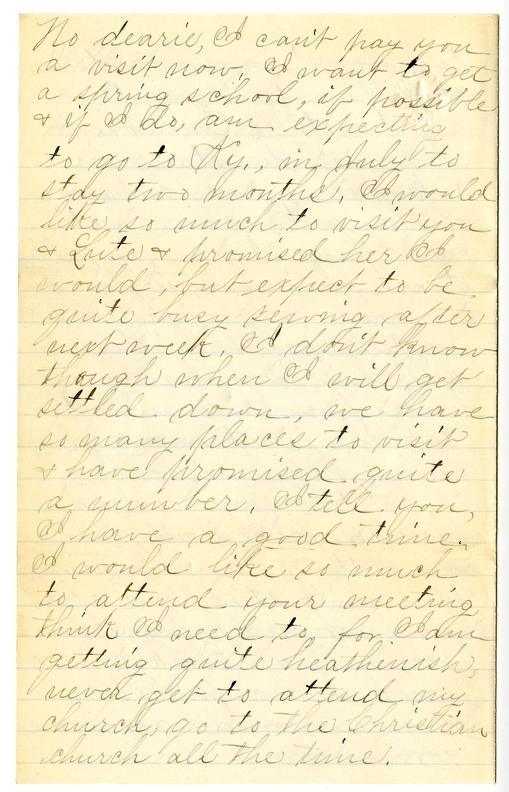 No dearie, I can't pay you
a visit now, I want to get
a spring school, if possible
& if I do, am expecting
to go to Ky., in July to
stay two months. I would
like so much to visit you
& Lute & promised her I
would, but expect to be
quite busy sewing after
next week. I don't know
though when I will get
settled down, we have
so many places to visit
& have promised quite
a number. I tell you,
I have a good time.
I would like so much
to attend your meeting,
think I need to, for I am
getting quite heathenish,
never get to attend my
church, go to the Christian
church all the time.